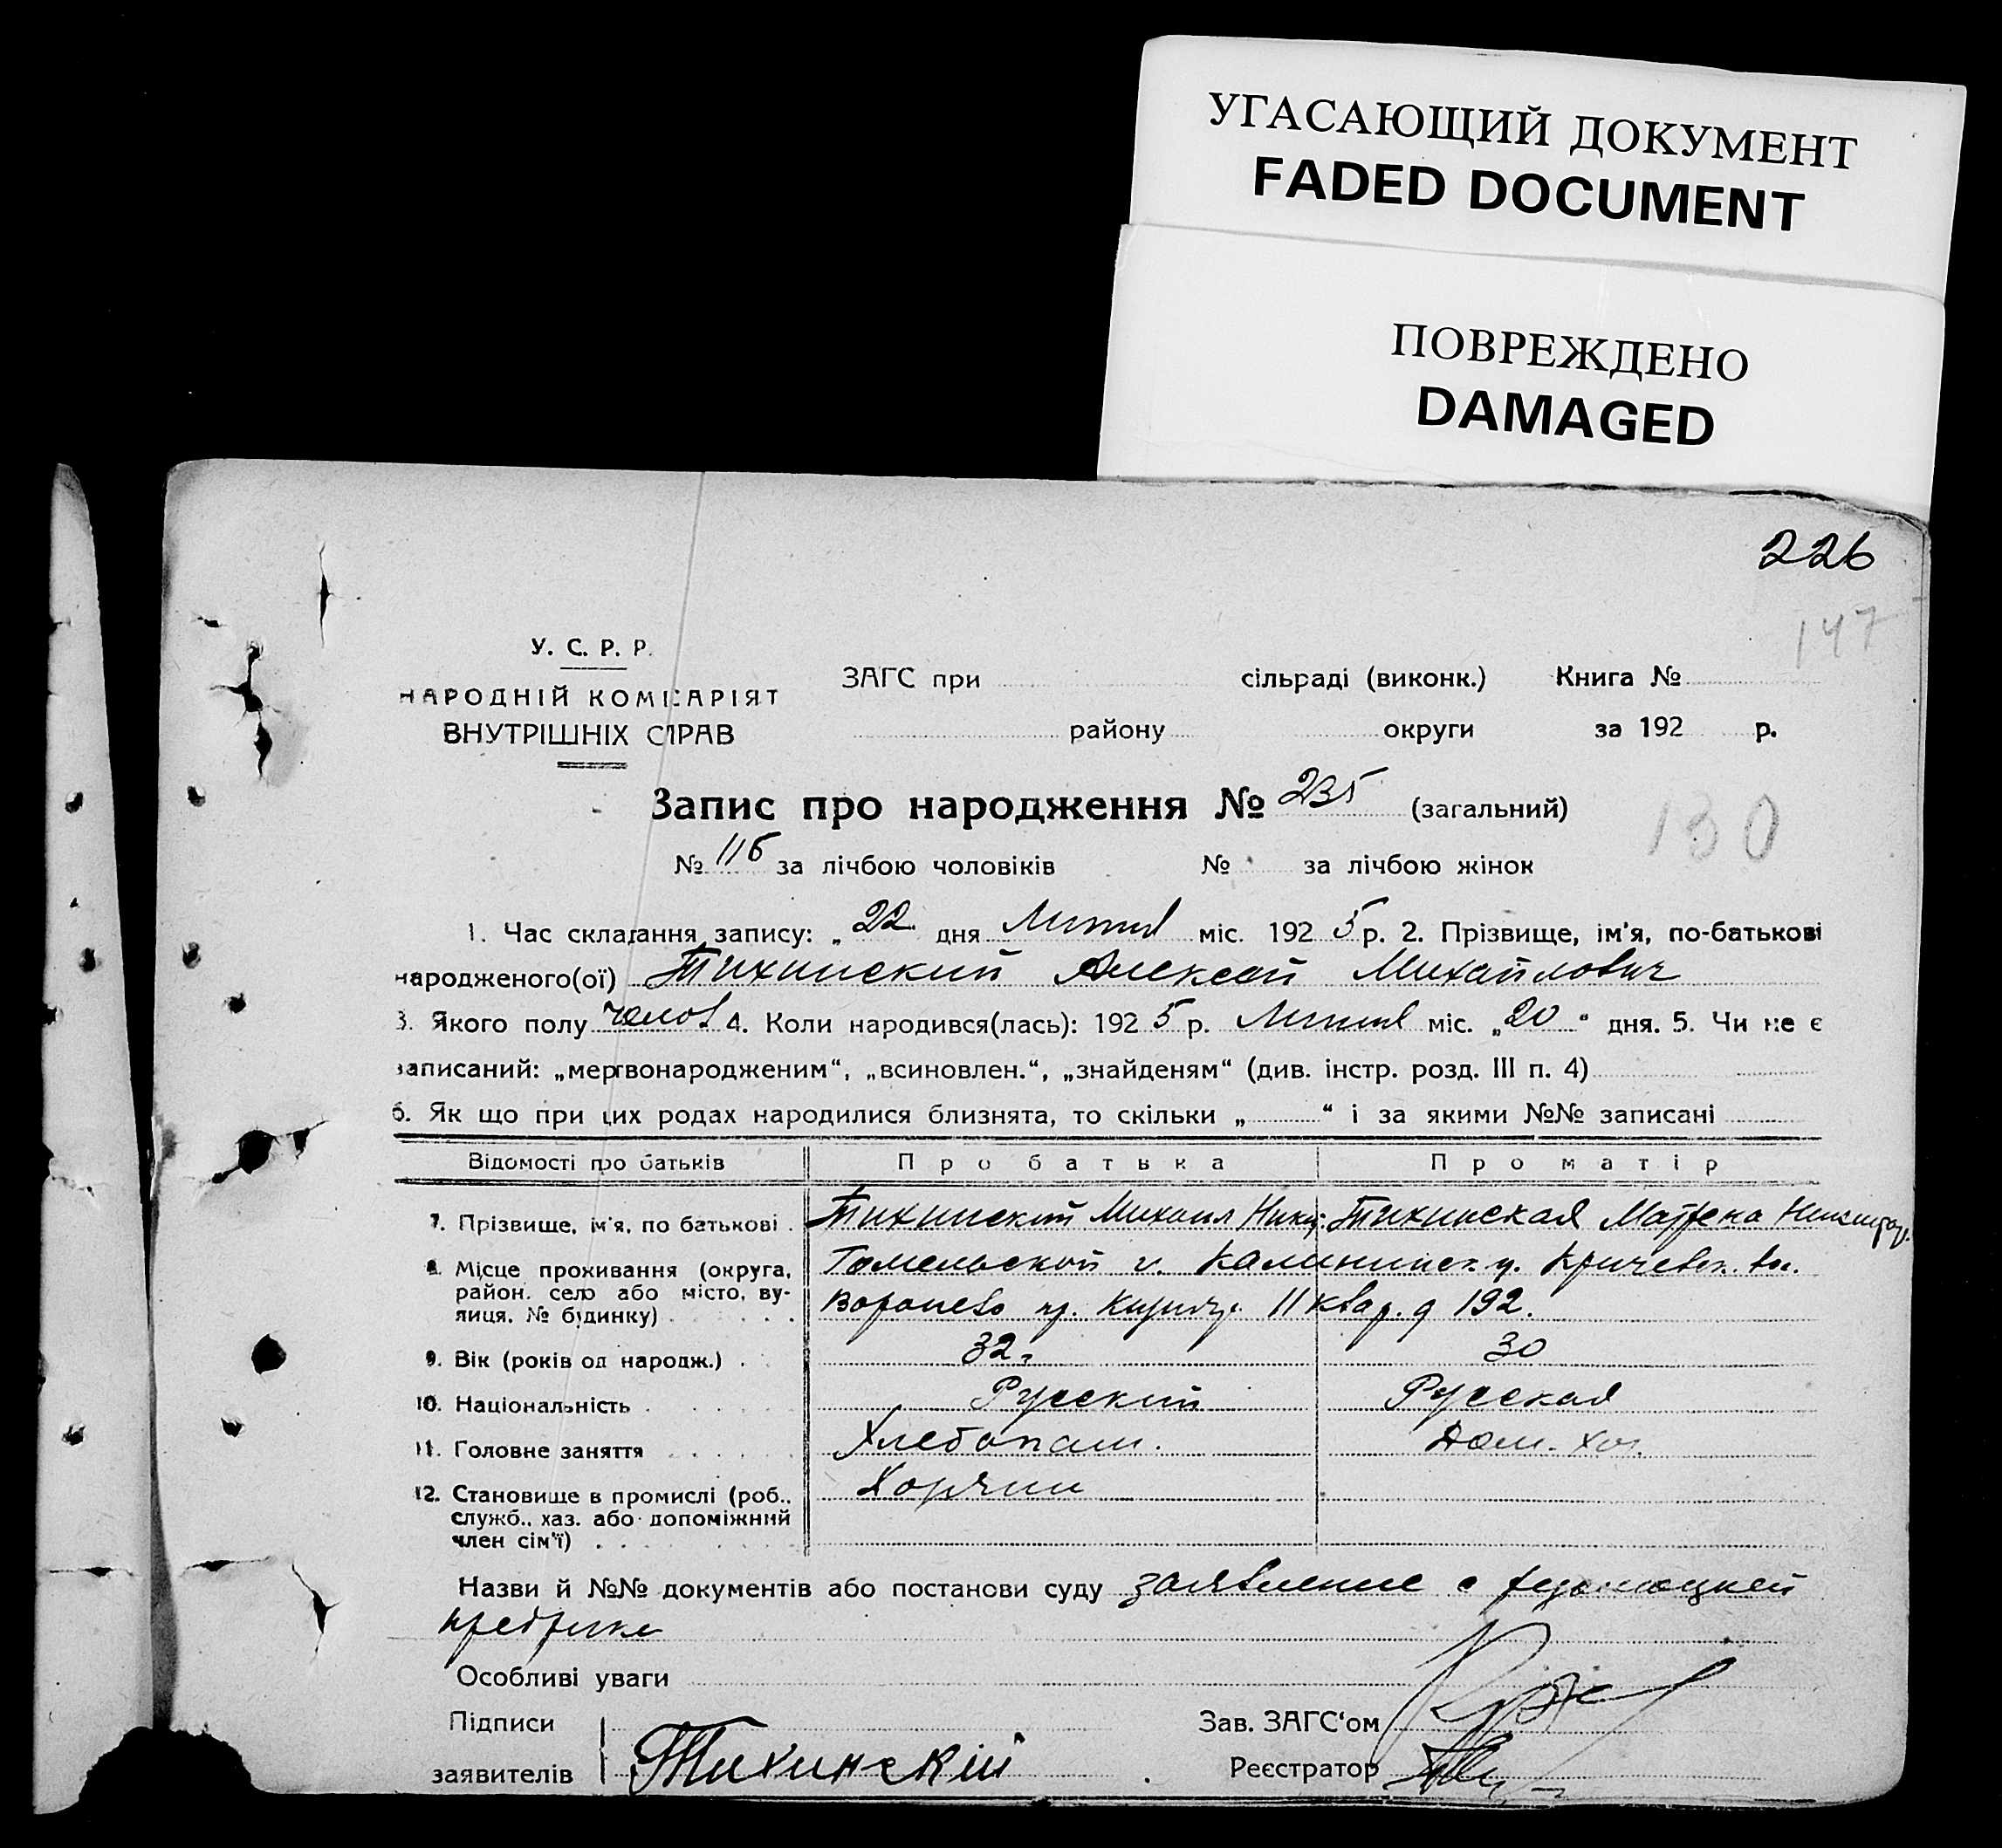 УГАСАЮЩИЙ ДОКУМЕНТ
FADED DOCUMENT
ПОВРЕЖДЕНО
DAMAGED
226
147
У. С. Р. Р.
НАРОДНІЙ КОМІСАРІЯТ
ВНУТРІШНІХ СПРАВ
ЗАГС при сільраді (виконк.) Книга №
району округи за 192 р.
Запис про народження № 235 (загальний)
130
№ 116 за лічбою чоловіків № за лічбою жінок
1. Час складання запису: „ 22 дня Липня міс. 192 5 р. 2. Прізвище, ім'я, по-батькові
народженого(ої) Тихинский Алексей Михайлович
3. Якого полу челов 4. Коли народився(лась): 192 5 р. Липня міс. „ 20 “ дня. 5. Чи не є
записаний: „мертвонародженим“, „всиновлен.“, „знайденям“ (див. інстр. розд. III п. 4)
6. Як що при цих родах народилися близнята, то скільки „ “ і за якими №№ записані
Відомості про батьків Про батька Про матір
7. Прізвище, ім'я, по батькові . Тихинский Михаил Тихинская Матрена
8. Місце прохивання (округа, район. село або місто, вулиця. № будинку) Гомельской г. Калининск. у. Кричевск. вол.
11 квар. д 192.
9. Вік (років од народж.) . 32. 30
10. Національність . Русский Русская
11. Головне заняття Хлебопаш. Дом. хоз.
12. Становище в промислі (роб.. служб.. хаз. або допоміжний член сім'ї) .
Назви й №№ документів або постанови суду заявление с
Особливі уваги
Підписи Зав. ЗАГС‘ом
заявителів Тихинскій Реєстратор